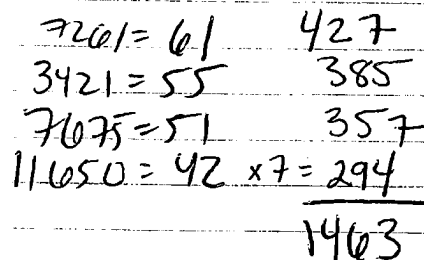 7261 = 61 427
3421 = 55 385
7675 = 51 357
11650 = 42 x7 = 294
1463